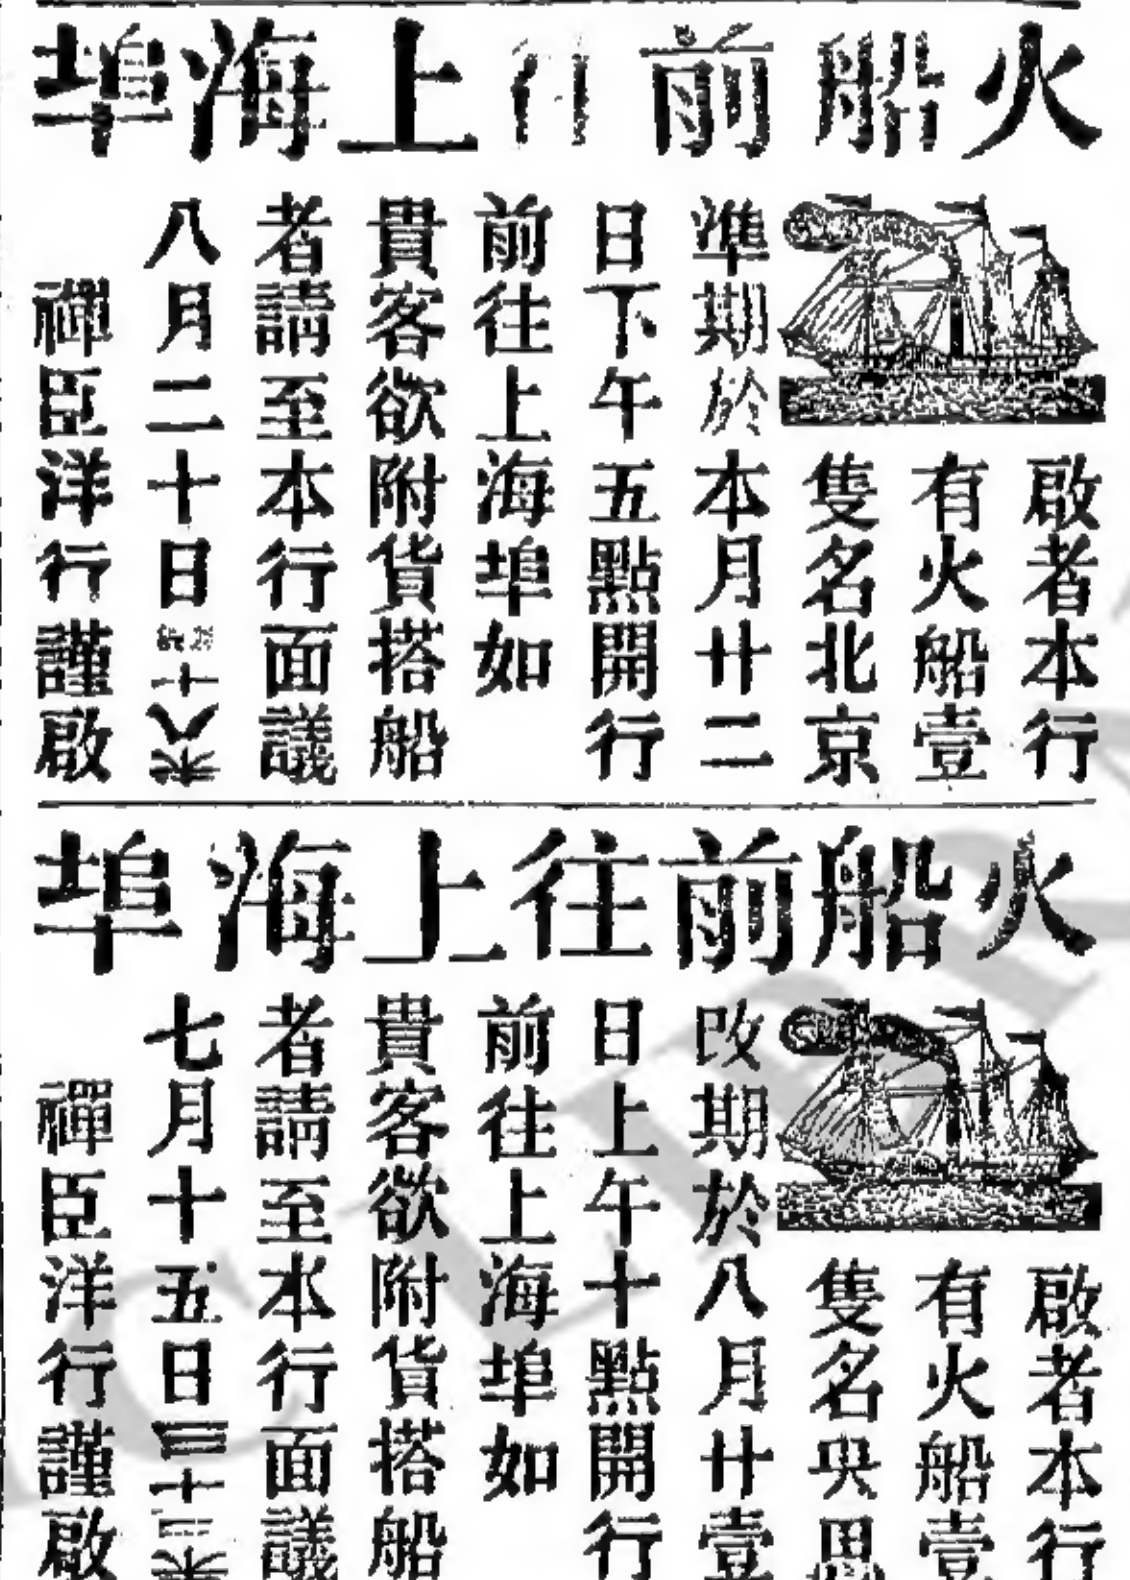 火船前往上海埠
啟者本行
有火船壹
隻名北京
準期於本月廿二
日下午五點開行
前往上海埠如
貴客欲附貨搭船
者請至本行面議
八月二十日
禪臣洋行謹啟
火船前往上海埠
啟者本行
有火船壹
隻名央思
改期於八月廿壹
日上午十點開行
前往上海埠如
貴客欲附貨搭船
者請至本行面議
七月十五日
禪臣洋行謹啟